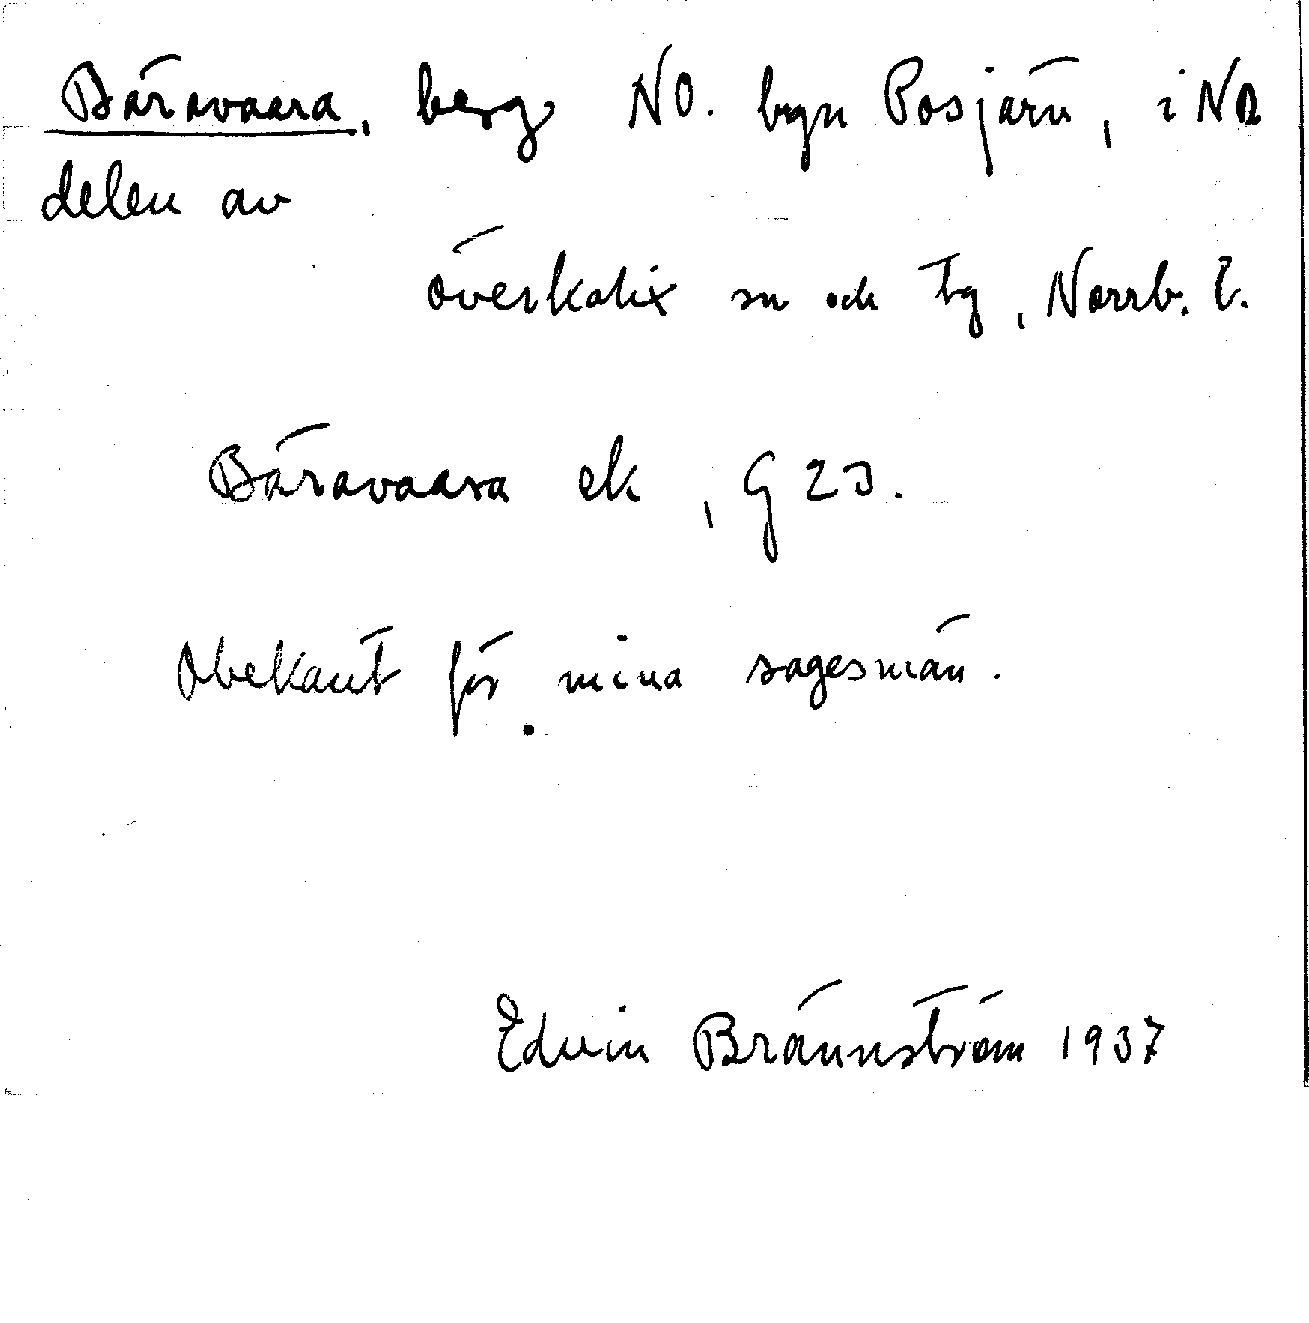 Bäravaara, berg NO. byn Posjärv, i NO
delen av
Överkalix sn och tg, Norrb. l.
Bäravaara ek, G 23.
Obekant för mina sagesmän.
Edvin Brännström 1937